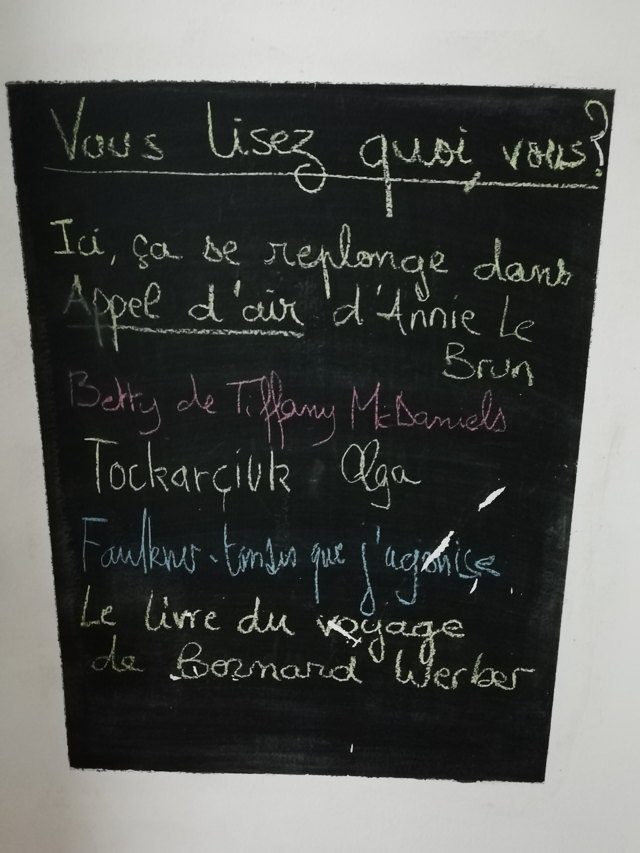 Vous lisez quoi, vous?
Ici, ça se replonge dans
Appel d'air d'Annie Le
Brun
Betty de Tiffany McDaniels
Tockarçiuk Olga
Faulkner - tandis que j'agonise
Le livre du voyage
de Bernard Werber